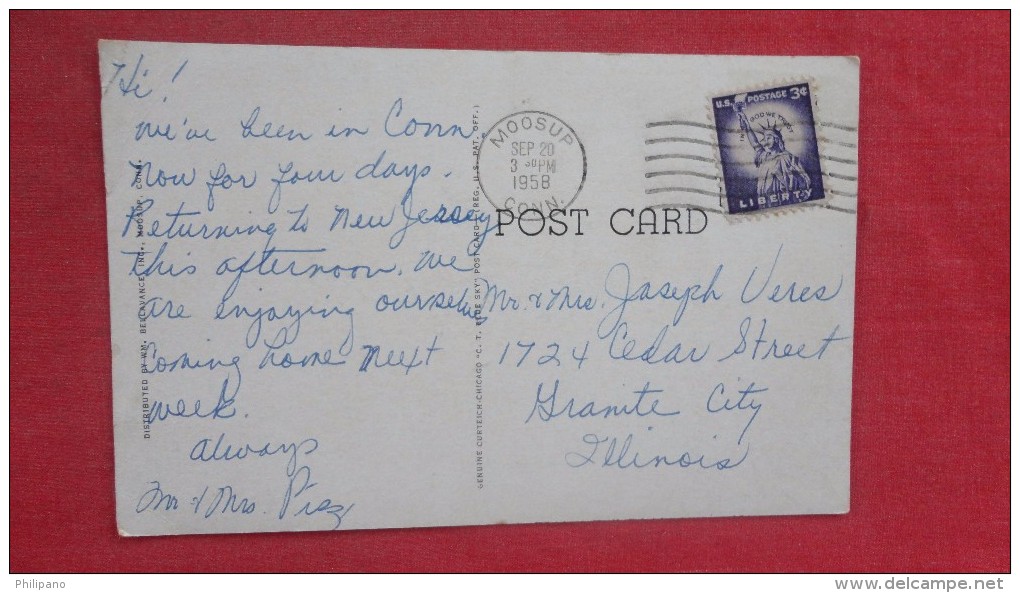 Hi!
We've been in Conn.
now for four days.
Returning to New Jersey
this afternoon. We
are enjoying ourselves
Coming home next
week.
Always
Mr & Mrs.
DISTRIBUTED BY WM. BELLAVANCE, INC., MOOSUP, CONN.
GENUINE CURTEICH-CHICAGO "C. T. BLUE SKY" POST CARD (REG. U.S. PAT. OFF.)
MOOSUP
SEP 20
3 30 PM
1958
CONN.
U.S. POSTAGE 3¢
IN GOD WE TRUST
LIBERTY
POST CARD
Mr. & Mrs. Joseph Veres
1724 Cedar Street
Granite City
Illinois
Philipano
www.delcampe.net